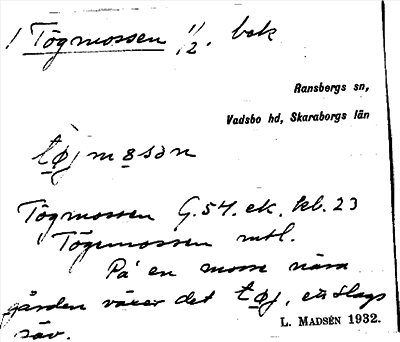 ! Tögmossen 1/2. bek
Ransbergs sn,
Vadsbo hd, Skaraborgs län
tøjmosən
Tögmossen G.54. ek. kl. 23
Tögemossen mtl.
På en mosse nära
gården växer det tøj, ett slags
säv.
L. MADSÉN 1932.